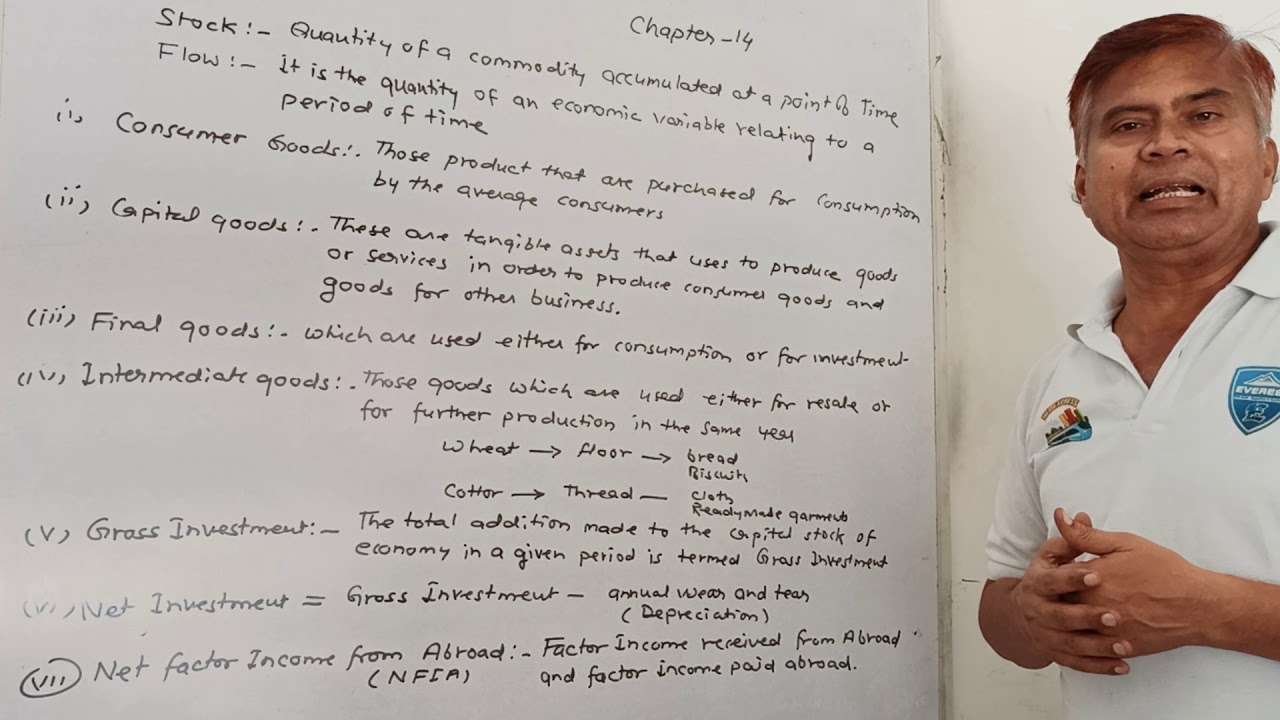 Chapter-14
Stock:- Quantity of a commodity accumulated at a point of Time
Flow:- it is the quantity of an economic variable relating to a
period of time
(i) Consumer Goods:. Those product that are purchased for consumption
by the average consumers
(ii) Capital goods:. These are tangible assets that uses to produce goods
or services in order to produce consumer goods and
goods for other business.
(iii) Final goods:- which are used either for consumption or for investment
(iv) Intermediate goods:. Those goods which are used either for resale or
for further production in the same year
Wheat → floor → bread
Biscuits
Cottor → Thread — cloth
Readymade garments
(v) Gross Investment:- The total addition made to the capital stock of
economy in a given period is termed Gross Investment
(vi) Net Investment = Gross Investment - annual wear and tear
(Depreciation)
(vii) Net factor Income from Abroad:- Factor Income received from Abroad
(NFIA) and factor income paid abroad.
EVEREST